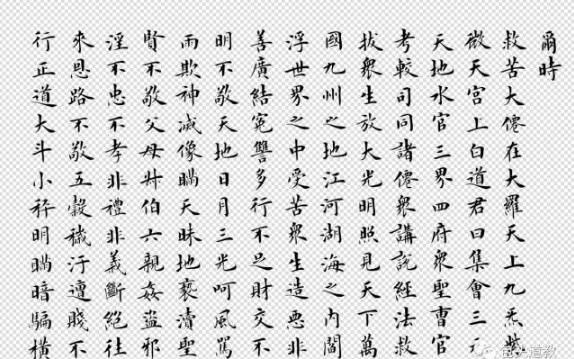 爾時
救苦大僊在大羅天上九炁紫
微天宮上白道君曰集會三元
天地水官三界四府衆聖曹官
考較司同諸僊衆講說經法救
拔衆生放大光明照見天下萬
國九州之地江河湖海之内閻
浮世界之中受苦衆生造悪非
善廣結冤讐多行不足財交不
明不敬天地日月三光呵風罵
雨欺神滅像瞞天昧地褻瀆聖
賢不敬父母并伯六親姦盜邪
淫不忠不孝非禮非義斷絕往
來恩路不敬五穀穢汙遭賤不
行正道大斗小秤明瞞暗騙橫
道教